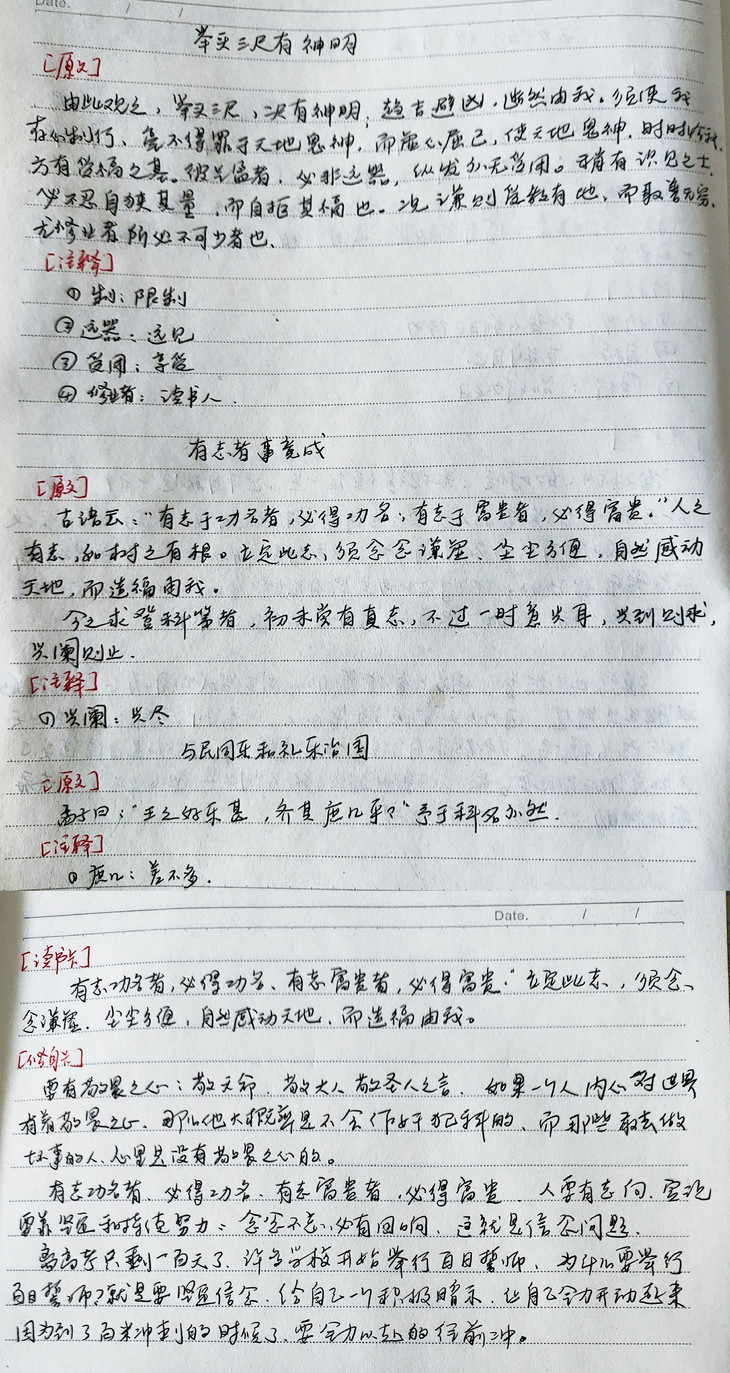 Date. / /
举头三尺有神明
[原文]
由此观之，举头三尺，决有神明；趋吉避凶，断然由我。须使我
存心制行，毫不得罪于天地鬼神，而虚心屈己，使天地鬼神，时时怜我，
方有受福之基。彼气盈者，必非远器，纵发亦无受用。稍有识见之士，
必不忍自狭其量，而自拒其福也。况谦则受教有地，而取善无穷，
尤修业者所必不可少者也。
[注释]
① 制：限制
② 远器：远见
③ 受用：享受
④ 修业者：读书人．
有志者事竟成
[原文]
古语云：“有志于功名者，必得功名；有志于富贵者，必得富贵。”人之
有志，如树之有根。立定此志，须念念谦虚、尘尘方便，自然感动
天地，而造福由我。
今之求登科第者，初未尝有真志，不过一时意兴耳，兴到则求，
兴阑则止．
[注释]
① 兴阑：兴尽
与民同乐和礼乐治国
[原文]
孟子曰：“王之好乐甚，齐其庶几乎？”予于科名亦然．
[注释]
① 庶几：差不多．
Date. / /
[读书卡]
有志功名者，必得功名、有志富贵者，必得富贵．”立定此志、，须念、
念谦虚．尘尘方便，自然感动天地、而造福由我。
要有敬畏之心：敬天命．敬大人 敬圣人之言．如果一个人内心对世界
有着敬畏之心．那么他大概率是不会作奸犯科的．而那些敢去做
坏事的人、心里是没有敬畏之心的。
有志功名者．必得功名、有志富贵者．必得富贵．人要有志向．实现
要靠坚定和持续努力：念念不忘，必有回响．这就是信念问题．
离高考只剩一百天了．许多学校开始举行百日誓师．为什么要举行
百日誓师？就是要坚定信念．给自己一个积极暗示．让自己全力开动起来
因为到了百米冲刺的时候了．要全力以赴的往前冲。